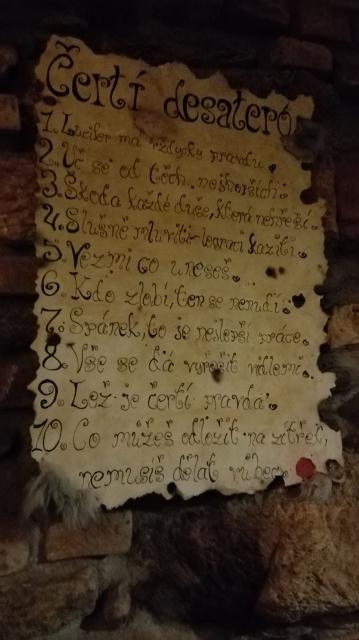 Čertí desatero
1. Lucifer má vždycky pravdu.
2. Uč se od těch nejhorších.
3. Škoda každé duše, která nehřeší.
4. Slušně mluviti - lenoraci kaziti.
5. Vezmi co uneseš.
6. Kdo zlobí, ten se nenudí.
7. Spánek, to je nejlepší práce.
8. Vše se dá vyřešit válením.
9. Lež je čertí pravda.
10. Co můžeš odložit na zítřek,
nemusíš dělat vůbec.